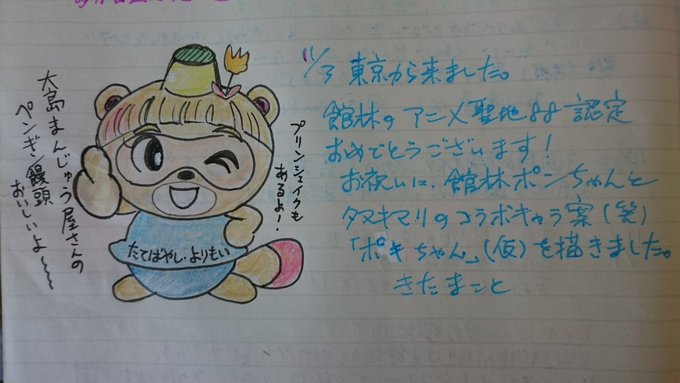 11/3 東京から来ました。
館林のアニメ聖地88認定
おめでとうございます！
お祝いに、館林ポンちゃんと
タヌキマリのコラボキャラ案(笑)
「ポキちゃん」(仮)を描きました。
きたまこと
プリンシェイクも
あるよ！
大島まんじゅう屋さんの
ペンギン饅頭
おいしいよ〜〜
たてばやし・よりもい